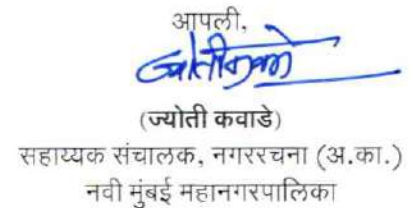 आपली,
ज्योती कवाडे
(ज्योती कवाडे)
सहाय्यक संचालक, नगररचना (अ.का.)
नवी मुंबई महानगरपालिका